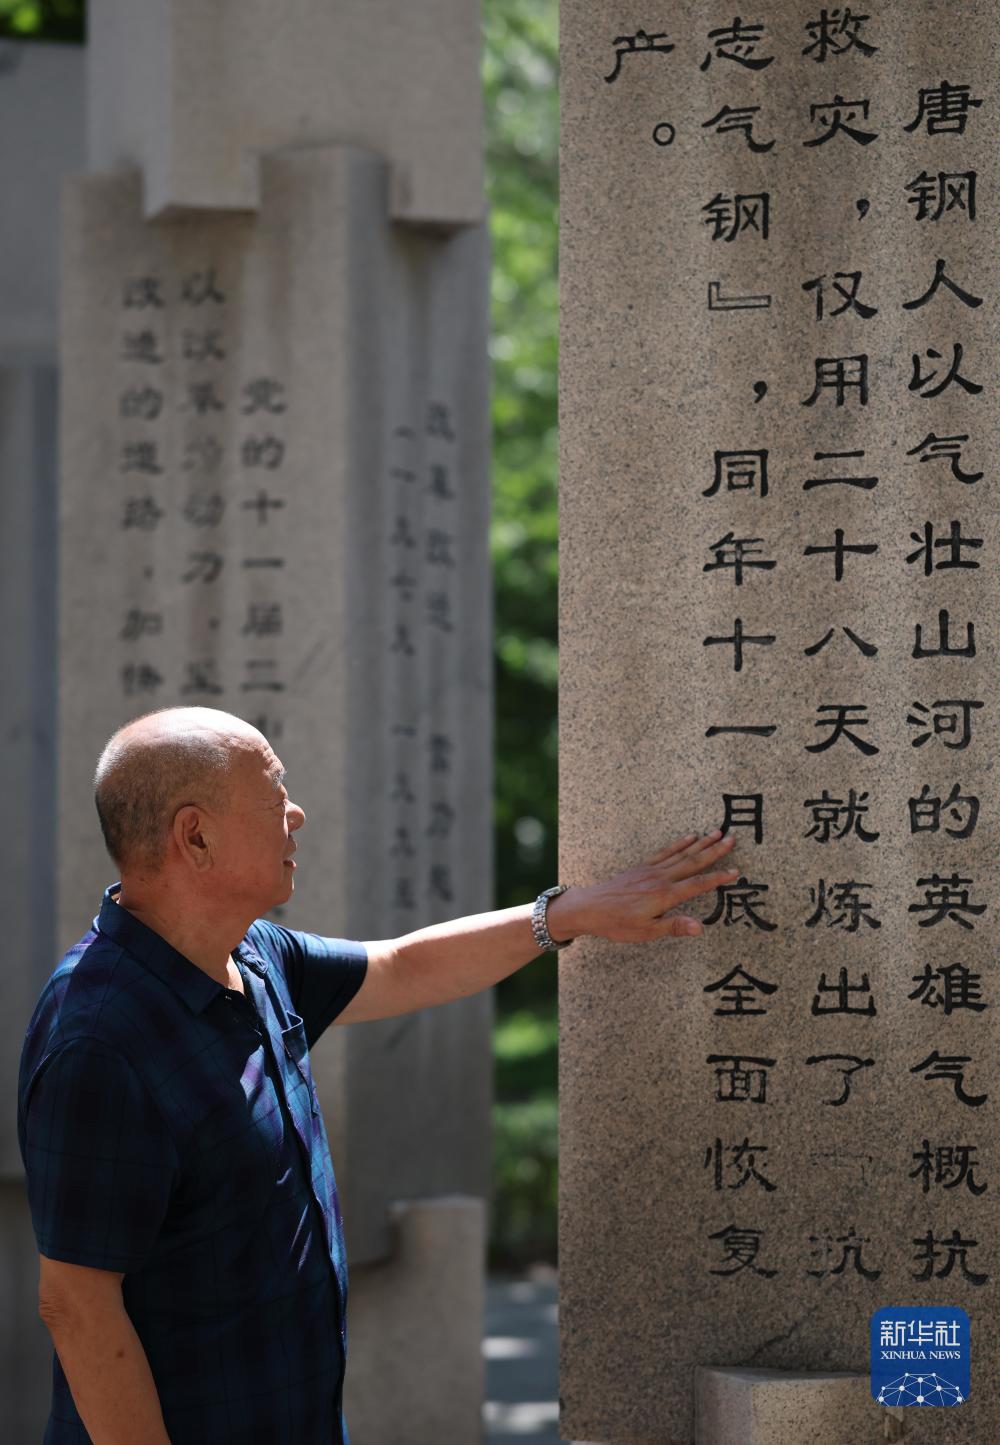 唐钢人以气壮山河的英雄气概抗
救灾，仅用二十八天就炼出了『抗
志气钢』，同年十一月底全面恢复
产。
改革改造
党的十一届三中
以改革为动力，坚
改造的道路，加快
新华社
XINHUA NEWS